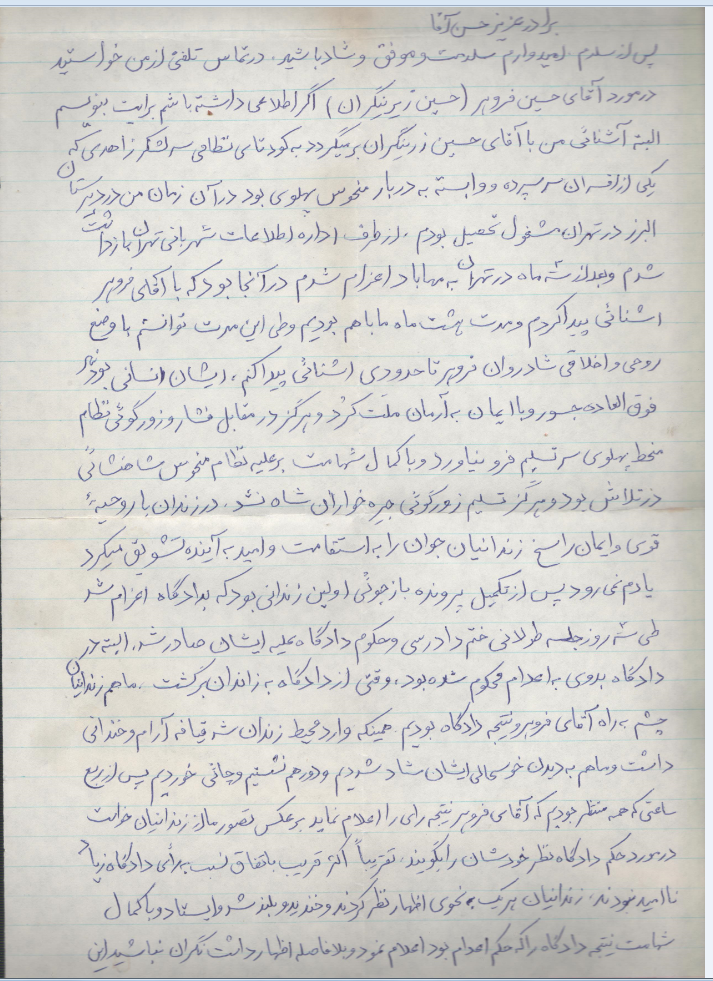 برادر عزیز حسن آقا
پس از سلام، امیدوارم سلامت و موفق و شاد باشید. در تماس تلفنی از من خواستید
در مورد آقای حسین فروهر (حسین زیرینگران) اگر اطلاعی داشته باشم برایت بنویسم
البته آشنائی من با آقای حسین زرینگران برمیگردد به کودتای نظامی سرلشکر زاهدی که
یکی از افسران سرسپرده و وابسته به دربار منحوس پهلوی بود در آن زمان من در دبیرستان
البرز در تهران مشغول تحصیل بودم، از طرف اداره اطلاعات شهربانی تهران بازداشت
شدم و بعد از شه ماه در تهران به مهاباد اعزام شدم در آنجا بود که با آقای فروهر
اشنائی پیدا کردم و مدت هشت ماه ما باهم بودیم و طی این مدت توانستم با وضع
روحی و اخلاقی شادروان فروهر تا حدودی اشنائی پیدا کنم، ایشان انسانی بودند
فوق العاده جسور و با ایمان به آرمان ملت کُرد و هرگز در مقابل فشار و زورگوئی نظام
منحط پهلوی سر تسلیم فرو نیاورد و با کمال شهامت بر علیه نظام منحوس شاهنشائی
در تلاش بود و هرگز تسلیم زورگوئی جیره خواران شاه نشد. در زندان با روحیهٔ
قوی و ایمان راسخ زندانیان جوان را به استقامت و امید به آینده تشویق میکرد
یادم نمی رود پس از تکمیل پرونده بازجوئی اولین زندانی بود که بدادگاه اعزام شد
طی شه روز جلسه طولانی ختم دادرسی و حکوم دادگاه علیه ایشان صادر شد. البته در
دادگاه بدوی به اعدام محکوم شده بود، وقتی از دادگاه به زاندان برگشت. ما هم زندانیان
چشم براه آقای فروهر و نتیجه دادگاه بودیم. همینکه وارد محیط زندان شد قیافه آرام و خندانی
داشت و ما هم به دیدن خوشحالی ایشان شاد شدیم و دور هم نشستیم و چائی خوردیم پس از ربع
ساعتی که همه منتظر بودیم که آقای فروهر نتیجه رای را اعلام نماید بر عکس تصور ما از زندانیان خواست
در مورد حکم دادگاه نظر خودشان را بگویند. تقریباً اکثر قریب باتفاق نسبت به رأی دادگاه زیاد
ناامید نبودند. زندانیان هر یک به نحوی اظهار نظر کردند و خندید و بلند شد و ایستاد و با کمال
شهامت نتیجه دادگاه را که حکم اعدام بود اعلام نمود و بلافاصله اظهار داشت نگران نباشید این